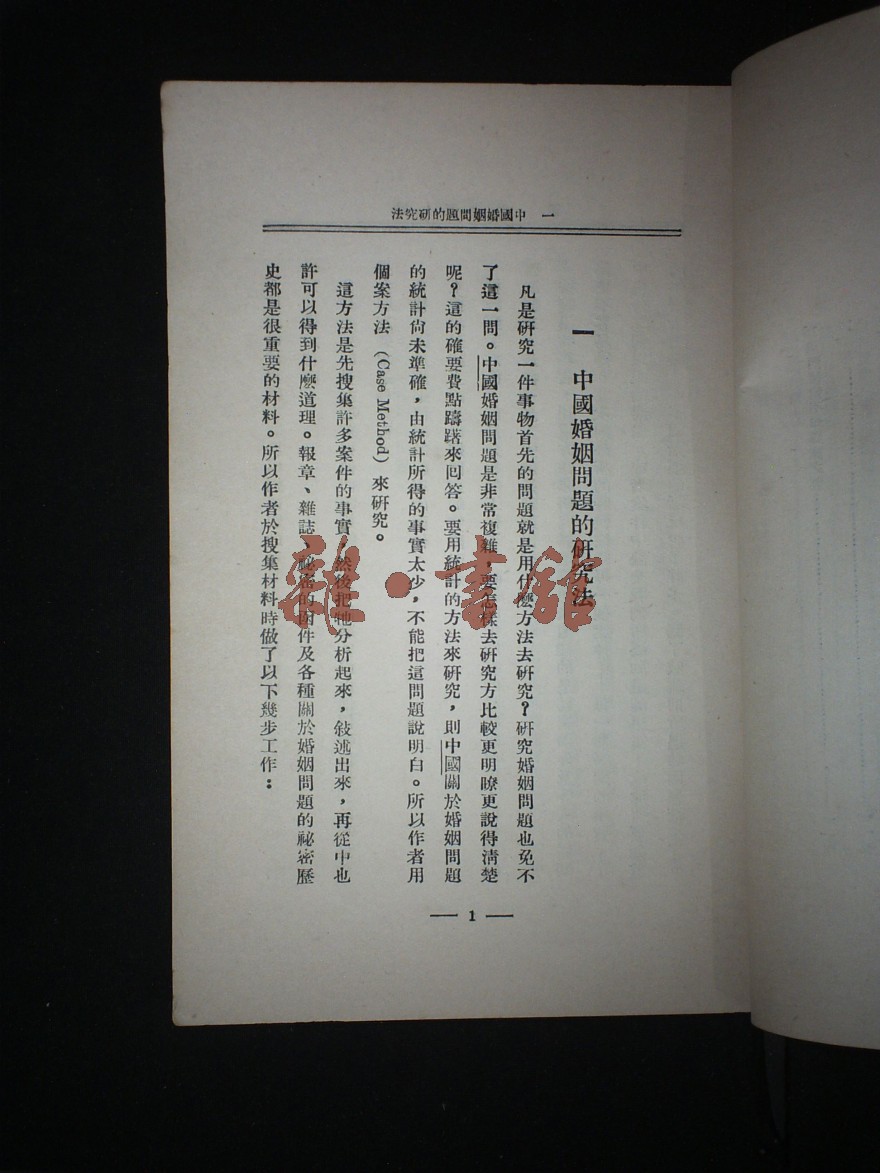 一 中國婚姻問題的研究法
一 中國婚姻問題的研究法
凡是研究一件事物首先的問題就是用什麼方法去研究？研究婚姻問題也免不
了這一問。中國婚姻問題是非常複雜，要怎樣去研究方比較更明瞭更說得清楚
呢？這的確要費點躊躇來回答。要用統計的方法來研究，則中國關於婚姻問題
的統計尙未準確，由統計所得的事實太少，不能把這問題說明白。所以作者用
個案方法 (Case Method) 來研究。
這方法是先搜集許多案件的事實，然後把牠分析起來，敍述出來，再從中也
許可以得到什麼道理。報章、雜誌、祕密的函件及各種關於婚姻問題的祕密歷
史都是很重要的材料。所以作者於搜集材料時做了以下幾步工作：
— 1 —
雜·書館